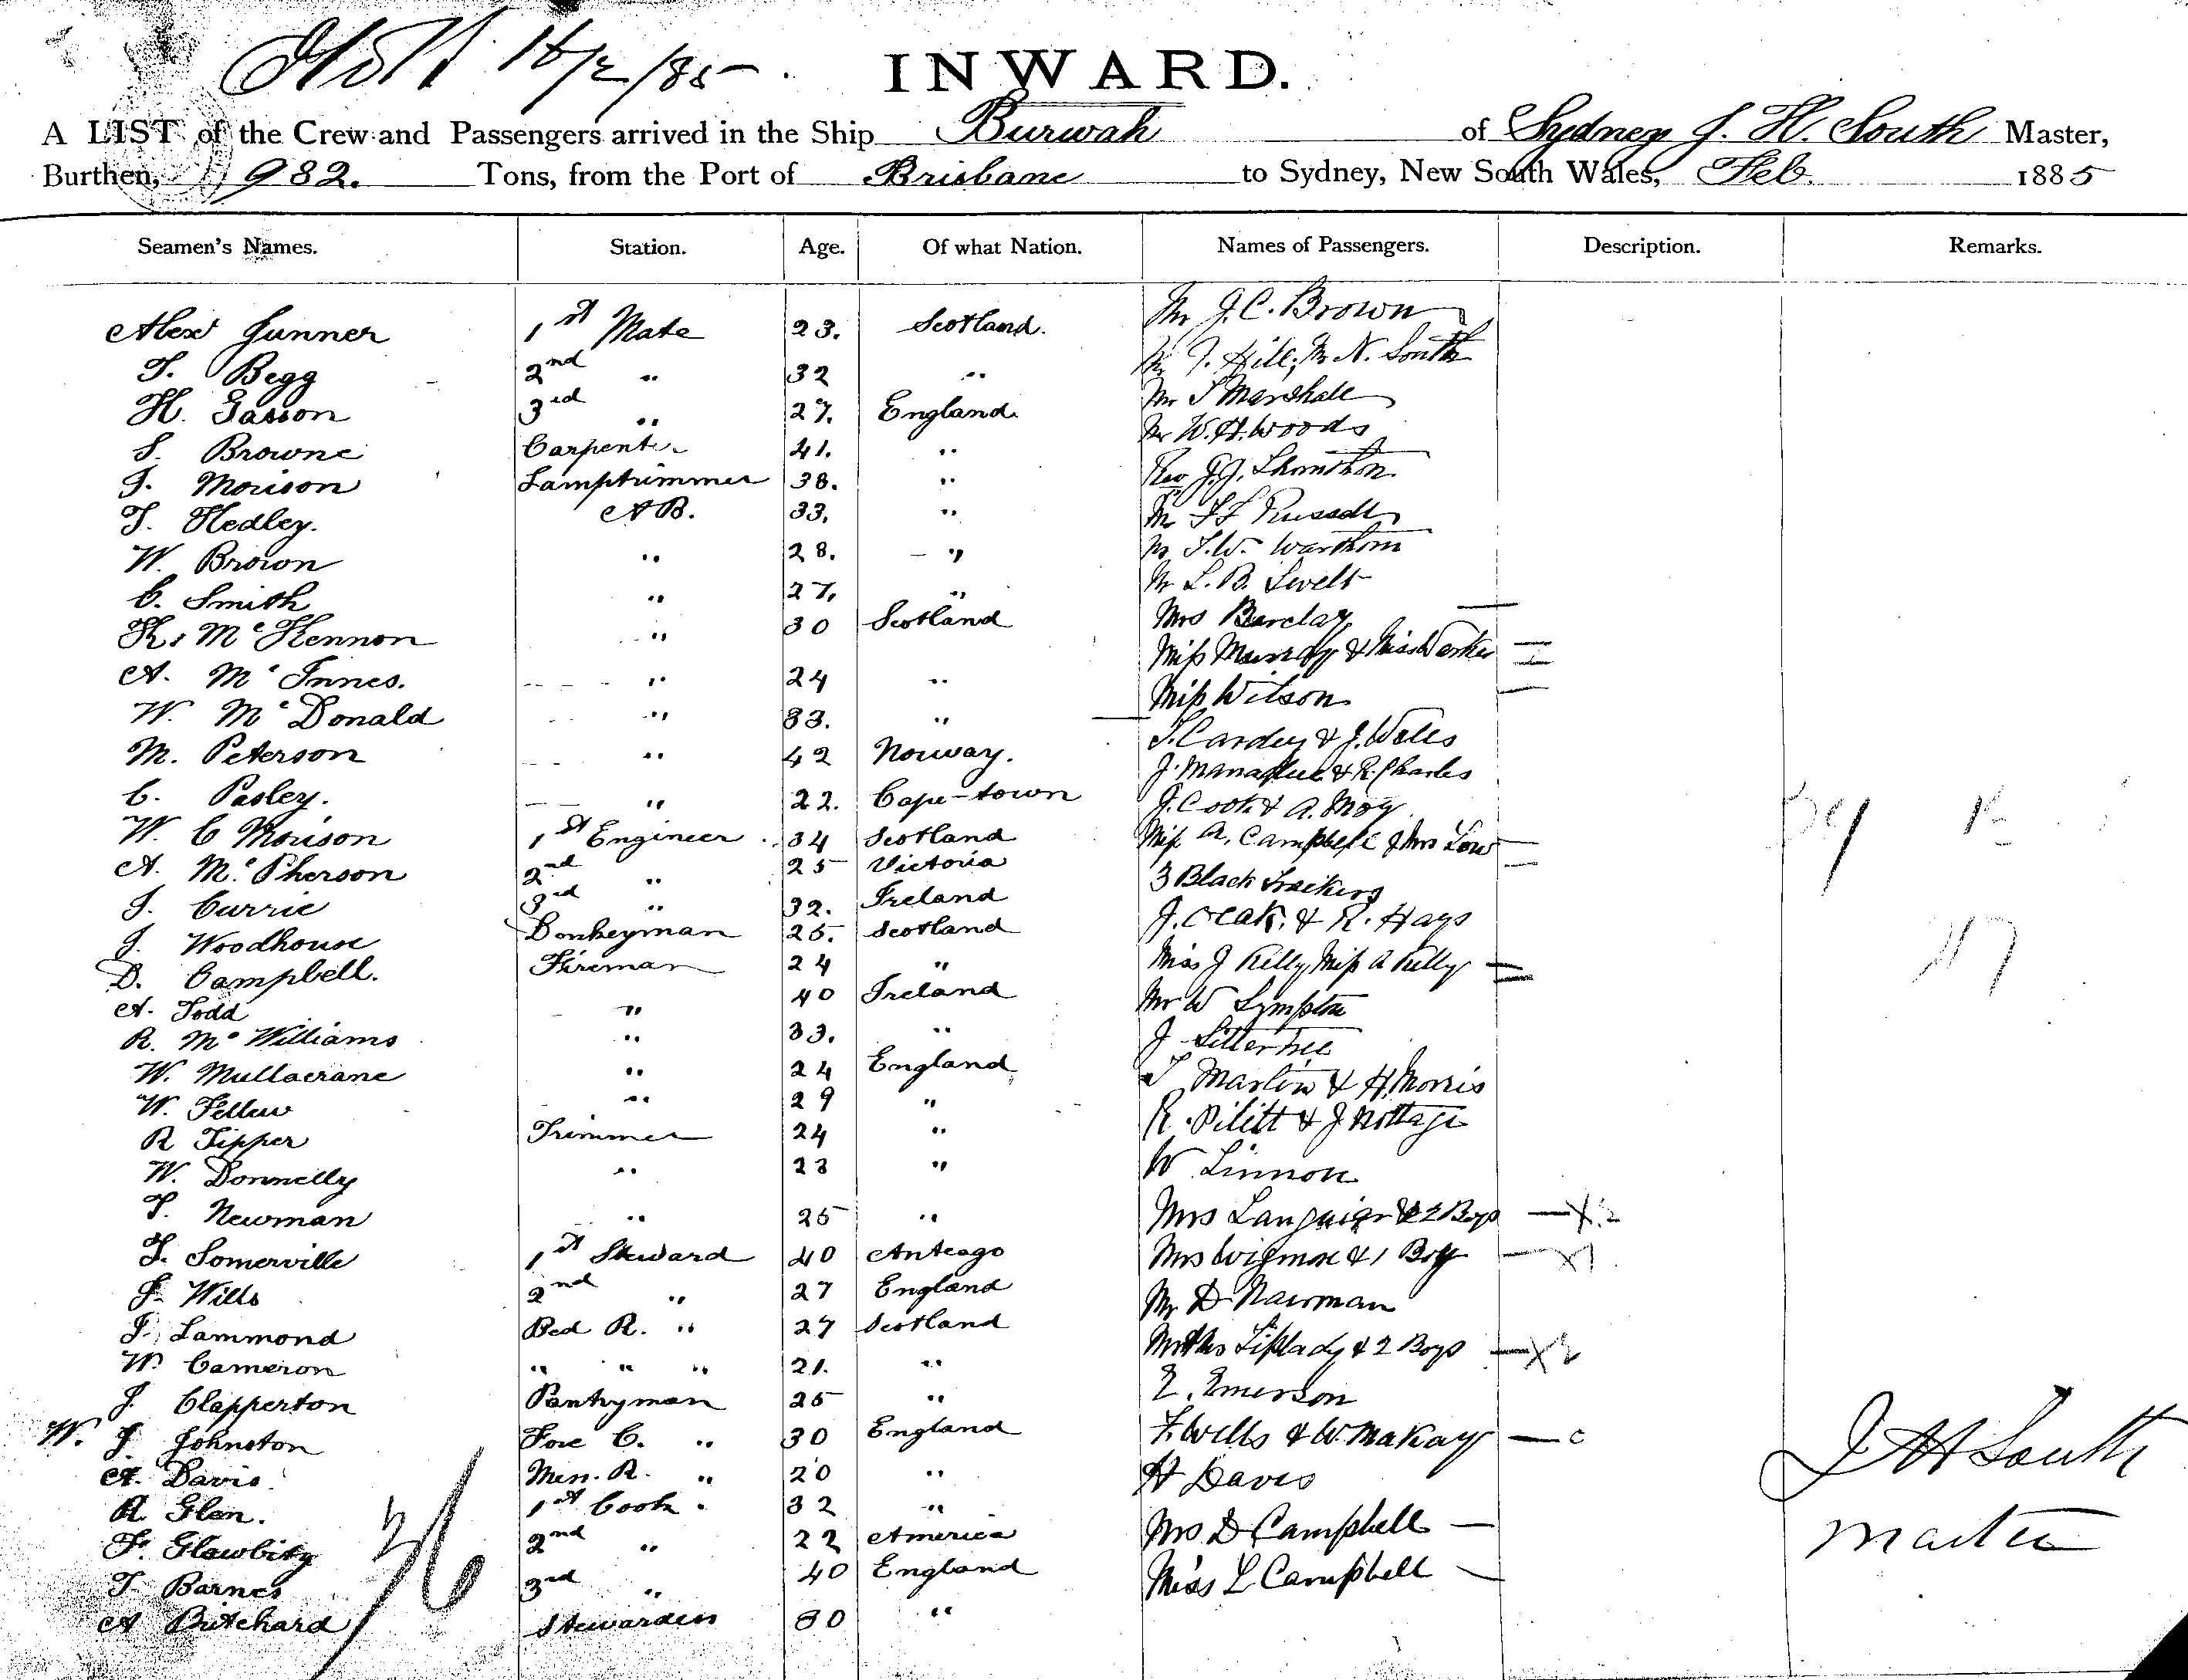 16/2/85.
INWARD.
A LIST of the Crew and Passengers arrived in the Ship Burwah of Sydney J. H. South Master,
Burthen, 982. Tons, from the Port of Brisbane to Sydney, New South Wales, Feb. 1885
Seamen's Names. Station. Age. Of what Nation. Names of Passengers. Description. Remarks.
Alex Gunner 1st Mate 23. Scotland. Mr J. C. Brown
T. Begg 2nd " 32 " Mr T. Hill, Mr N. South
H. Gasson 3rd " 27. England. Mr J Marshall
S. Browne Carpenter 41. " Mr W. H. Woods
J. Morison Lamptrimmer 38. " Rev J. J.
T. Hedley. AB. 33. " Mr Russell
W. Brown " 28. " Mr J. W.
C. Smith " 27. " Mr L. B.
K. McKennon " 30 Scotland Mrs Barclay
A. McInnes. " 24 " Miss Murray & Miss
W. McDonald " 33. " Miss Wilson
M. Peterson " 42 Norway. & J. Wells
C. Pasley. " 22. Cape-town J. & R. Charles
W. C Morison 1st Engineer 34 Scotland J. Cook & A. Moy
A. McPherson 2nd " 25 Victoria Miss A. Campbell & Mrs Low
J. Currie 3rd " 32. Ireland 3 Black Trackers
J. Woodhouse Donkeyman 25. Scotland J. Creak. & R. Hays
D. Campbell. Fireman 24 " Miss J Kelly, Miss A Kelly
A. Todd " 40 Ireland Mr W
R. McWilliams " 33. " J
W. Mullacrane " 24 England Martin & H. Morris
W. Fellew " 29 " R. Pilitt & J Nottage
R Tipper Trimmer 24 " W Linnon
W. Donnelly " 23 "
T. Newman " 25 " Mrs & 2 Boys X 2
T. Somerville 1st Steward 40 Anteago Mrs Wigmore & 1 Boy X 1
J. Wills 2nd " 27 England Mr D Nawman
J. Lammond Bed R. " 27 Scotland Mr & Mrs Liplady & 2 Boys X 2
W. Cameron " " " 21. " E. Emerson
J. Clapperton Pantryman 25 " F. Wells & W. Makay c
W. J Johnston Fore C. " 30 England H Davis
A. Davis. Mess. R. " 20 " Mrs D Campbell
R Glen. 1st Cook " 32 " Miss L Campbell
F. Glowbitz 2nd " 22 America
T. Barnes 3rd " 40 England
A Pritchard Stewardess 30 "
36
J H South
Master